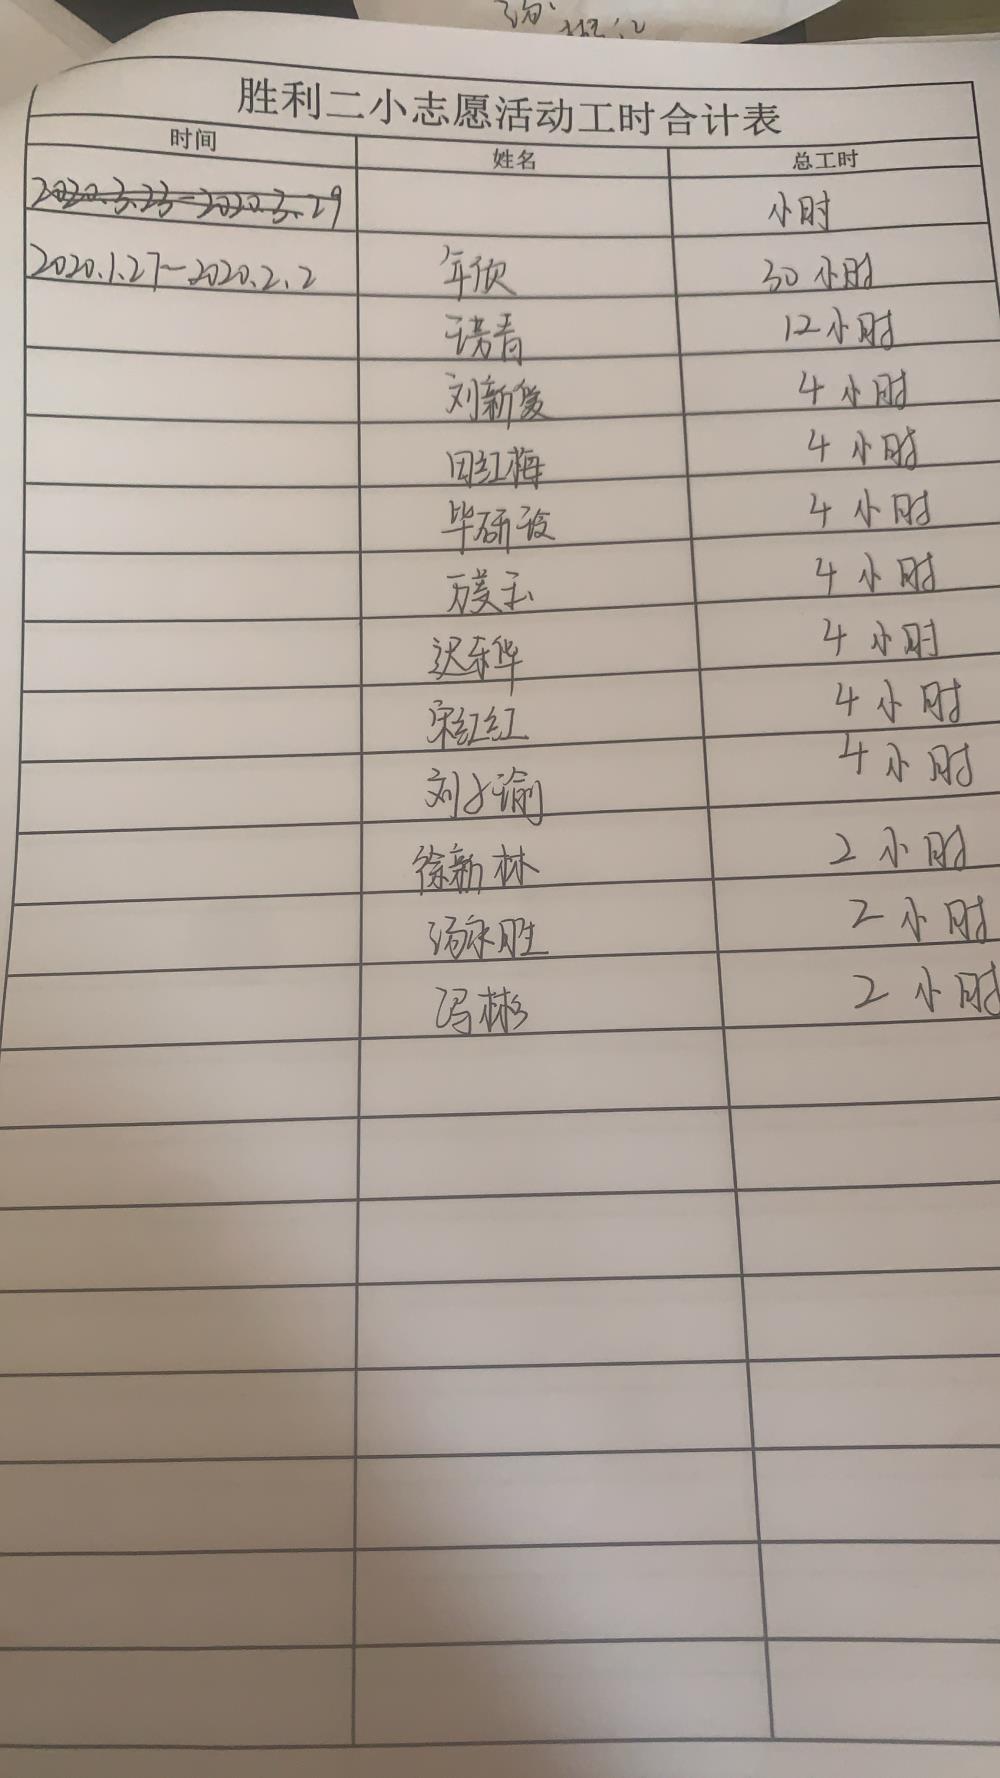 胜利二小志愿活动工时合计表
时间 姓名 总工时
2020.3.23-2020.3.29 小时
2020.1.27~2020.2.2 年欣 30小时
12小时
刘新爱 4小时
田红梅 4小时
毕研 4小时
万美玉 4小时
迟东华 4小时
宋红红 4小时
刘 瑜 4小时
徐新林 2小时
汤永胜 2小时
冯彬 2小时